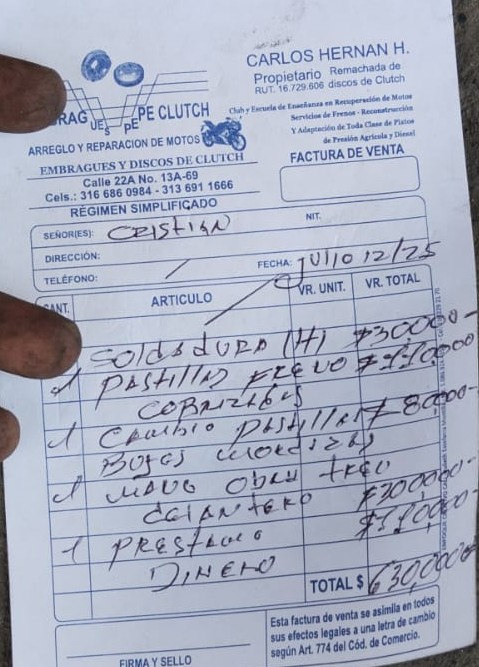 CARLOS HERNAN H.
Propietario Remachada de
RUT. 16.729.606 discos de Clutch
PE CLUTCH
Club y Escuela de Enseñanza en Recuperación de Motos
Servicios de Frenos - Reconstrucción
Y Adaptación de Toda Clase de Platos
de Presión Agrícola y Diesel
ARREGLO Y REPARACION DE MOTOS
EMBRAGUES Y DISCOS DE CLUTCH
Calle 22A No. 13A-69
Cels.: 316 686 0984 - 313 691 1666
RÉGIMEN SIMPLIFICADO
FACTURA DE VENTA
SEÑOR(ES): CRISTIAN NIT.
DIRECCIÓN:
TELÉFONO: FECHA: JULIO 12/25
CANT. ARTICULO VR. UNIT. VR. TOTAL
SOLDADURA (H) $30,000-
1 PASTILLAS FRENO $110,000
COBRIZADAS
1 CAMBIO PASTILLAS $80,000-
BUJES MORDIZAS
1 MANO OBRA FRENO
DELANTERO $300,000-
1 PRESTAMO $110,000-
DINERO
TOTAL $ 630,000-
Esta factura de venta se asimila en todos
sus efectos legales a una letra de cambio
según Art. 774 del Cód. de Comercio.
FIRMA Y SELLO